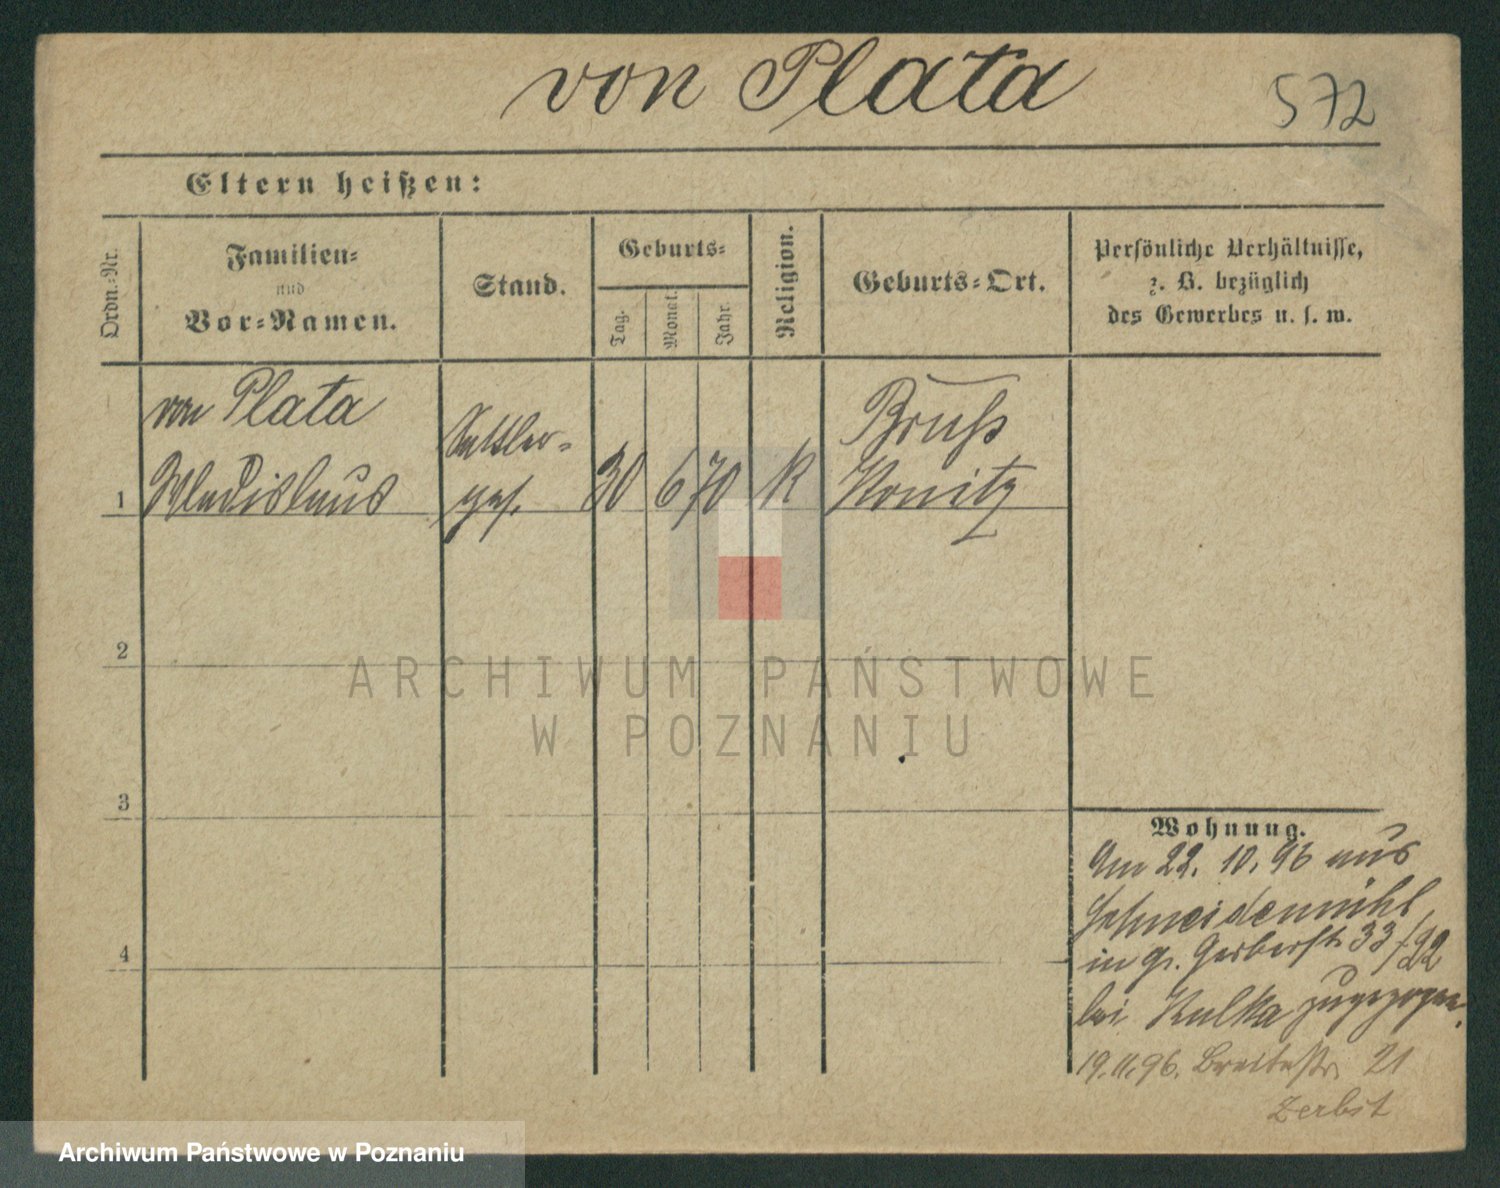 von Plata
572
Eltern heißen:
Ordn.-Nr.
Familien-
und
Vor-Namen.
Stand.
Geburts-
Tag.
Monat.
Jahr.
Religion.
Geburts-Ort.
Persönliche Verhältnisse,
z. B. bezüglich
des Gewerbes u. s. w.
von Plata
Wladislaus
Sattler-
ges.
30
6
70
K
Bruss
Konitz
1
2
3
4
ARCHIWUM PAŃSTWOWE
W POZNANIU
Wohnung.
Am 22. 10. 96 aus
Schneidemühl
in gr. Gerberstr. 33/22
bei Kulka zugezogen.
19.11.96. Breitestr. 21
Zerbst
Archiwum Państwowe w Poznaniu